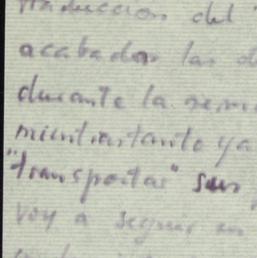 traduccion del
acabadas las d
durante la sem
mientrastanto ya
"transportar" sus
voy a seguir en